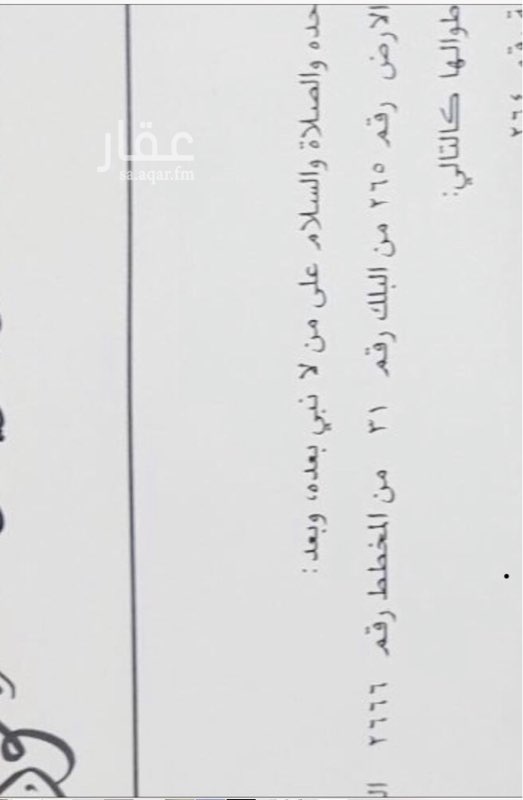 حده والصلاة والسلام على من لا نبي بعده، وبعد:
الارض رقم ٢٦٥ من البلك رقم ٣١ من المخطط رقم ٢٦٦٦ ال
طوالها كالتالي:
عقار
sa.aqar.fm